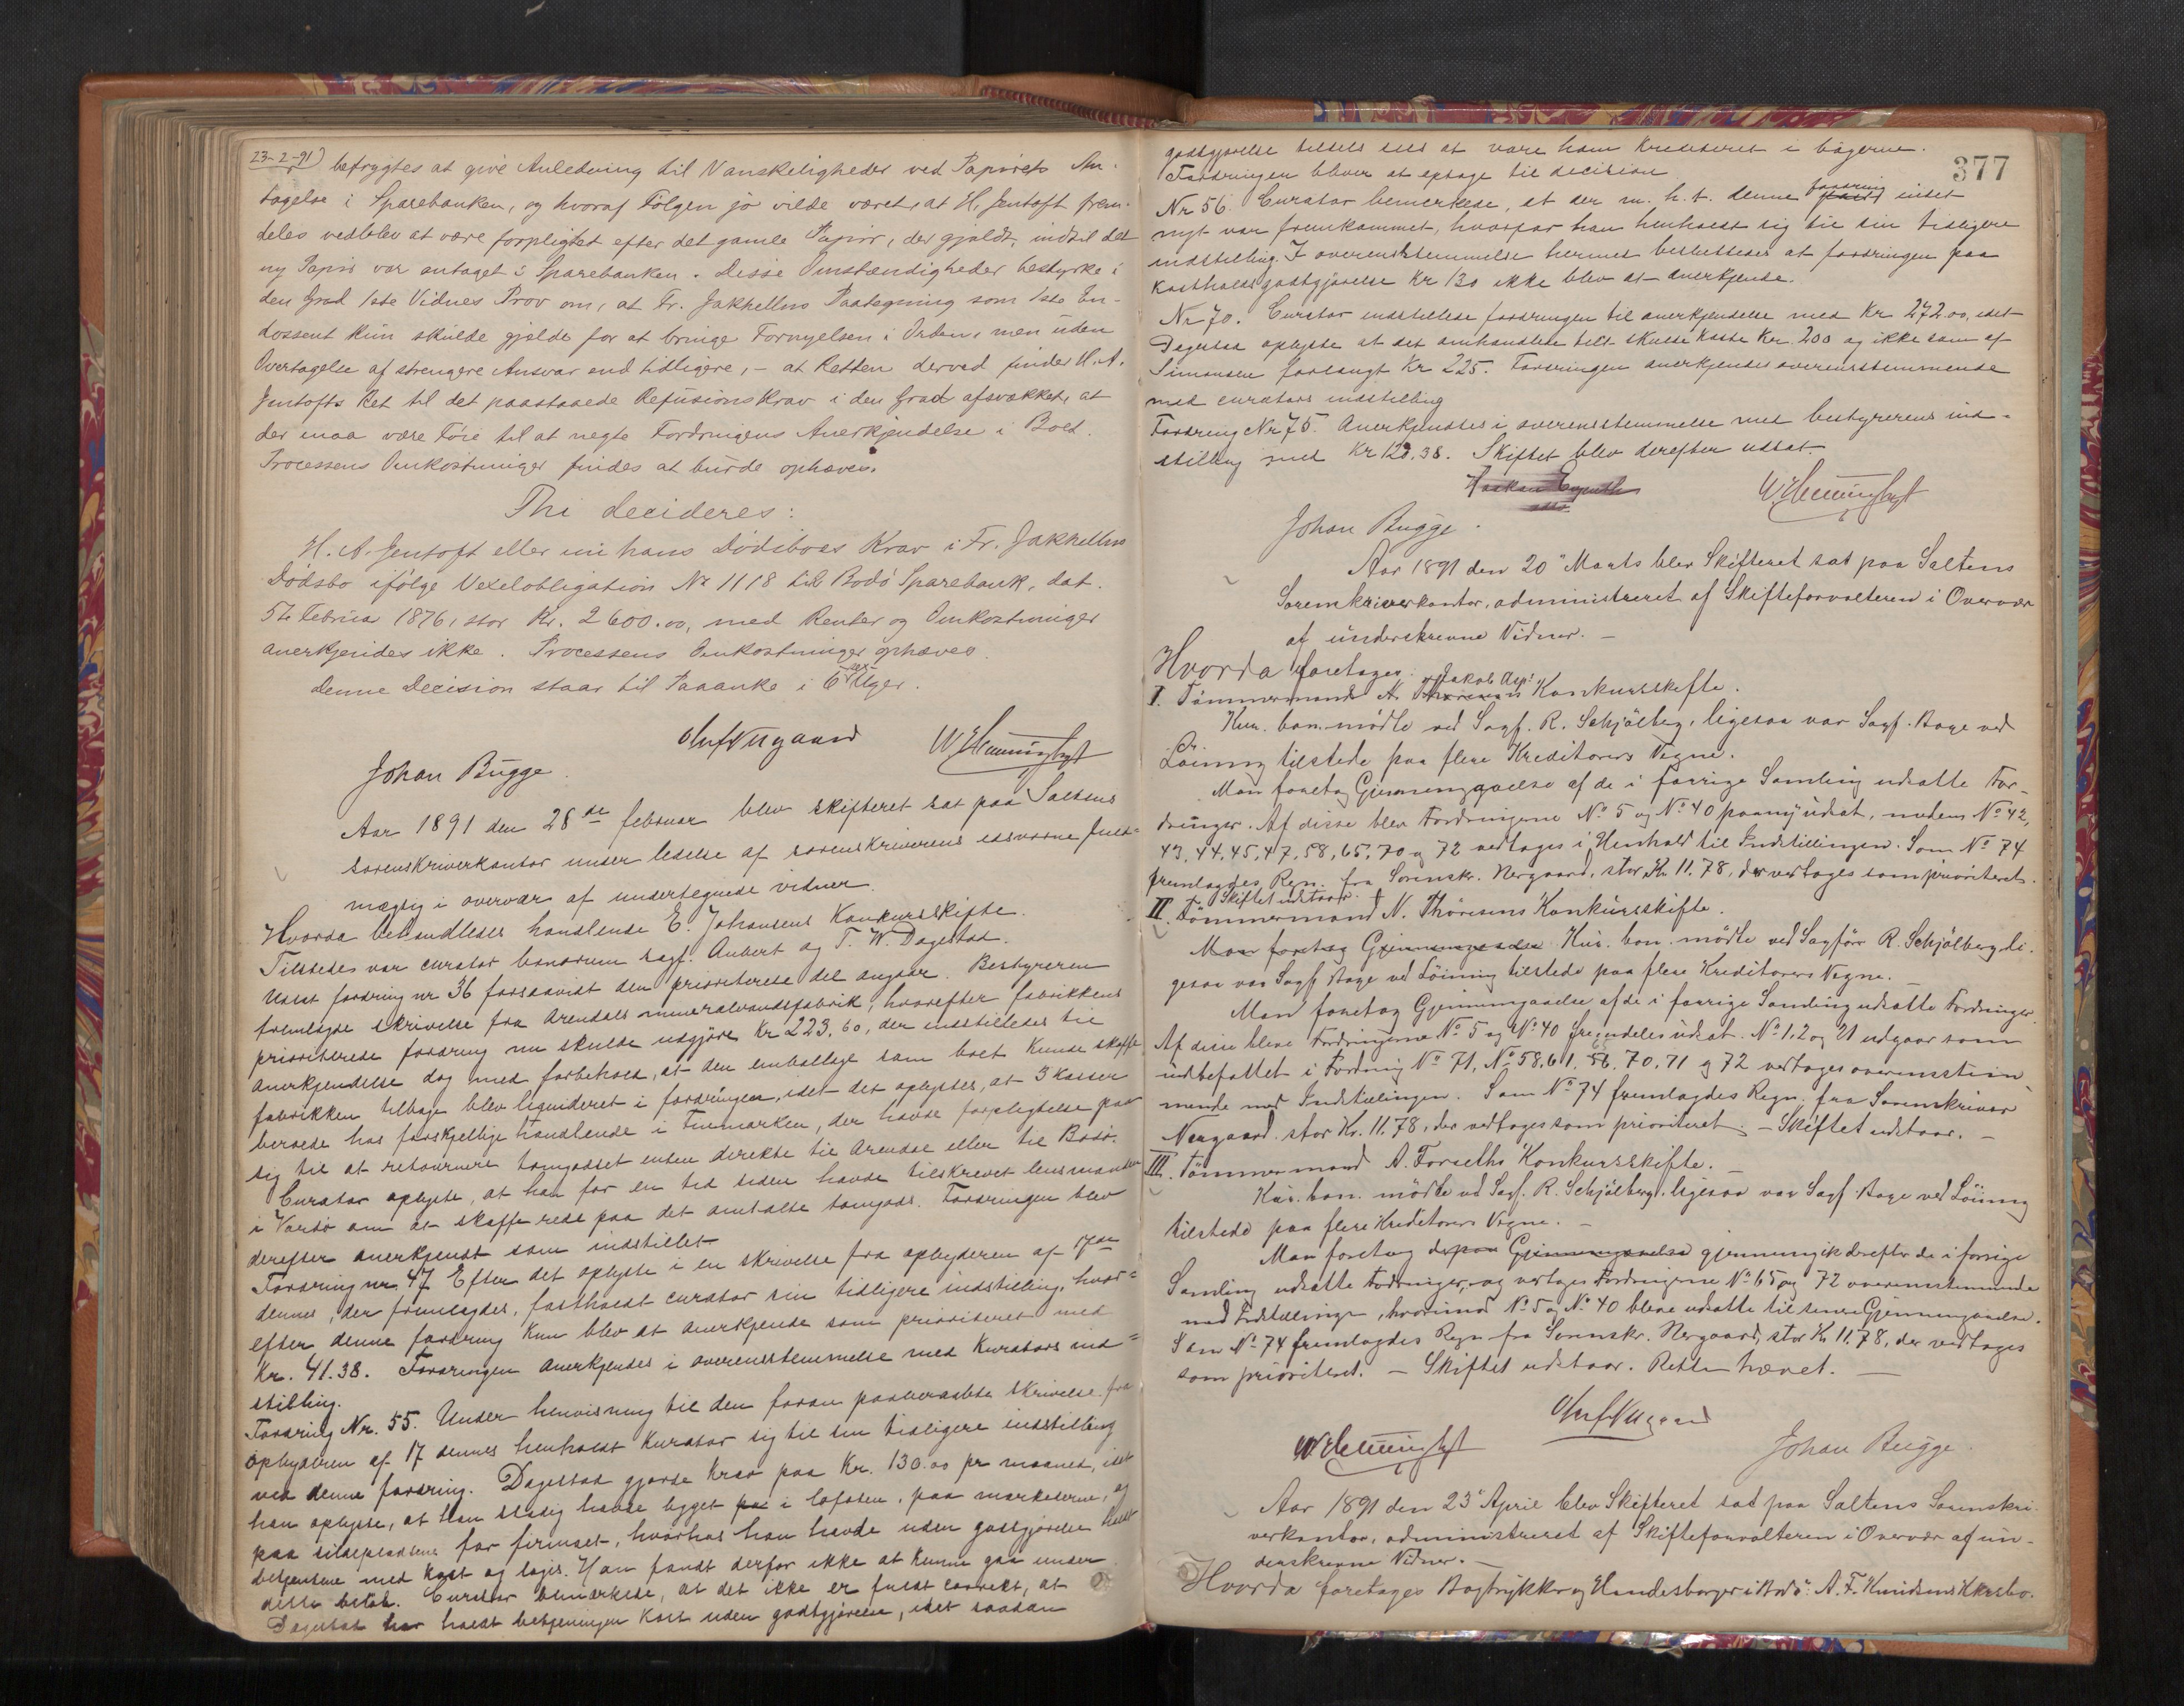 23-2-91) befrygtes at give Anledning til Vanskeligheder ved Papirets An-
tagelse i Sparebanken, og hvoraf Følgen jo vilde været, at H. Jentoft frem-
deles vedblev at være forpligtet efter det gamle Papir, der gjaldt, indtil det
ny Papir var antaget i Sparebanken. Disse Omstændigheder bestyrke i
den Grad 1ste Vidnes Prov om, at Fr. Jakhellns Paategning som 1ste En-
dossent kun skulde gjælde for at bringe Fornyelsen i Orden, men uden
Overtagelse af strengere Ansvar end tidligere, - at Retten derved finder H. A.
Jentofts Ret til det paastaaede Refusionskrav i den Grad afsvækket, at
der maa være Føie til at negte Fordringens Anerkjendelse i Boet.
Processens Omkostninger findes at burde ophæves.
Thi decideres:
H. A. Jentoft eller nu hans Dødsboes Krav i Fr. Jakhellns
Dødsbo ifølge Vexelobligation No 1118 til Bodø Sparebank, dat.
5te Februar 1876, stor Kr. 2600.00, med Renter og Omkostninger
anerkjendes ikke. Processens Omkostninger ophæves.
Denne Decision staar til Paaanke i 6 sex Uger.
Johan Bugge
Aar 1891 den 28de februar blev skifteret sat paa Saltens
sorenskriverkontor under ledelse af sorenskriverens edsvorne fuld=
mægtig i overvær af undertegnede vidner.
Hvorda behandledes handlende E. Johansens Konkursskifte.
Tilstedes var curator bonorum sagf. Aubert og T. W. Dagestad.
Udsat fordring nr 36 forsaavidt den prioriterede del angaar. Bestyreren
fremlagde skrivelse fra Arendals mineralvandsfabrik, hvorefter fabrikkens
prioriterede fordring nu skulde udgjøre Kr 223.60, der indstilledes til
anerkjendelse dog med forbehold, at den emballage som boet kunde skaffe
fabrikken tilbage blev liquideret i fordringen, idet det oplystes, at 3 kasser
beroede hos forskjellige handlende i Finmarken, der havde forpligtelse paa
sig til at retournere tomgodset enten direkte til Arendal eller til Bodø.
Curator oplyste, at han for en tid siden havde tilskrevet lensmanden
i Vardø om at skaffe rede paa det omtalte tomgods. Fordringen blev
derefter anerkjendt som indstillet
Fordring nr. 47 Efter det oplyste i en skrivelse fra opbyderen af 17de
dennes, der fremlagdes, fastholdt curator sin tidligere indstilling, hvor=
efter denne fordring kun blev at anerkjende som prioriteret med
Kr. 41.38. Fordringen anerkjendes i overensstemmelse med kurators ind=
stilling.
Fordring Nr. 55. Under henvisning til den foran paaberaabte skrivelse fra
opbyderen af 17 dennes henholdt kurator sig til sin tidligere indstilling
ved denne fordring. Dagestad gjorde krav paa Kr. 130.00 pr maaned, idet
han oplyste, at han stadig havde ligget paa i Lofoten, paa markederne, og
paa sildepladsene for firmaet, hvorhos han havde uden godtgjørelse holdt
betjentene med kost og logis. Han fandt derfor ikke at kunne gaa under
dette beløb. Curator bemærkede, at det ikke er fuldt correkt, at
Dagestad har holdt betjeningen kost uden godtgjørelse, idet saadan
377
godtgjørelse tildels sees at være ham krediteret i bøgerne.
Fordringen bliver at optage til decision
Nr 56. Curator bemerkede, at der m. h. t. denne fordring intet
nyt var fremkommet, hvorfor han henholdt sig til sin tidligere
indstilling. I overensstemmelse hermed besluttedes at fordringen paa
kostholdsgodtgjørelse Kr 130 ikke blev at anerkjende.
Nr 70. Curator indstillede fordringen til anerkjendelse med Kr 272.00, idet
Dagestad oplyste at det omhandlede telt skulde koste Kr. 200 og ikke som af
Simonsen forlangt Kr 225. Fordringen anerkjendes overensstemmende
med curators indstilling
Fordring Nr 75. Anerkjendtes i overensstemmelse med bestyrerens ind-
stilling med Kr 120.38. Skiftet blev derefter udsat.
Johan Bugge.
Aar 1891 den 20de Marts blev Skifteret sat paa Saltens
Sorenskriverkontor, administreret af Skifteforvalteren i Overvær
af underskrevne Vidner. -
Hvorda foretages:
I. Tømmermand Jakob Asp's Konkursskifte.
Kur. bon. mødte ved Sagf. R. Schjølberg, ligesaa var Sagf. Bage ved
Løining tilstede paa flere Kreditorers Vegne.
Man foretog Gjennemgaaelse af de i forrige Samling udsatte For-
dringer. Af disse blev Fordringerne No 5 og No 40 paany udsat, medens No 42,
43, 44, 45, 47, 58, 65, 70 og 72 vedtages i Henhold til Indstillingen. Som No 74
fremlagdes Regn. fra Sorenskr. Nergaard, stor Kr. 11.78, der vedtages som prioriteret.
Skiftet udstaar.
II. Tømmermand N. Thoresens Konkursskifte.
Man foretog Gjennemgaaelse Kur. bon. mødte ved Sagfører R. Schjølberg, li-
gesaa var Sagf. Bage ved Løining tilstede paa flere Kreditorers Vegne.
Man foretog Gjennemgaaelse af de i forrige Samling udsatte Fordringer.
Af disse bleve Fordringerne No 5 og No 40 fremdeles udsat. No 1, 2 og 21 udgaar som
indbefattet i Fordring No 71, No 58, 61, 65, 70, 71 og 72 vedtages overensstem-
mende med Indstillingen. Som No 74 fremlagdes Regn. fra Sorenskriver
Nergaard, stor Kr. 11.78, der vedtages som prioriteret. - Skiftet udstaar. -
III. Tømmermand A. Forseths Konkursskifte. -
Kur. bon. mødte ved Sagf. R. Schjølberg, ligesaa var Sagf. Bage ved Løining
tilstede paa flere Kreditorers Vegne. -
Man foretog derpaa Gjennemgaaelse gjennemgik derefter de i forrige
Samling udsatte Fordringer, og vedtages Fordringerne No 65 og 72 overensstemmende
med Indstillingen, hvorimod No 5 og No 40 bleve udsatte til senere Gjennemgaaelse.
Som No 74 fremlagdes Regn. fra Sorenskr. Nergaard, stor Kr. 11.78, der vedtages
som prioriteret. - Skiftet udstaar. Retten hævet. -
Johan Bugge.
Aar 1891 den 23de April blev Skifteret sat paa Saltens Sorenskri-
verkontor, administreret af Skifteforvalteren i Overvær af un-
derskrevne Vidner. -
Hvorda foretages Bogtrykker og Handelsborger i Bodø A. F. Knudsens Kkrsbo.